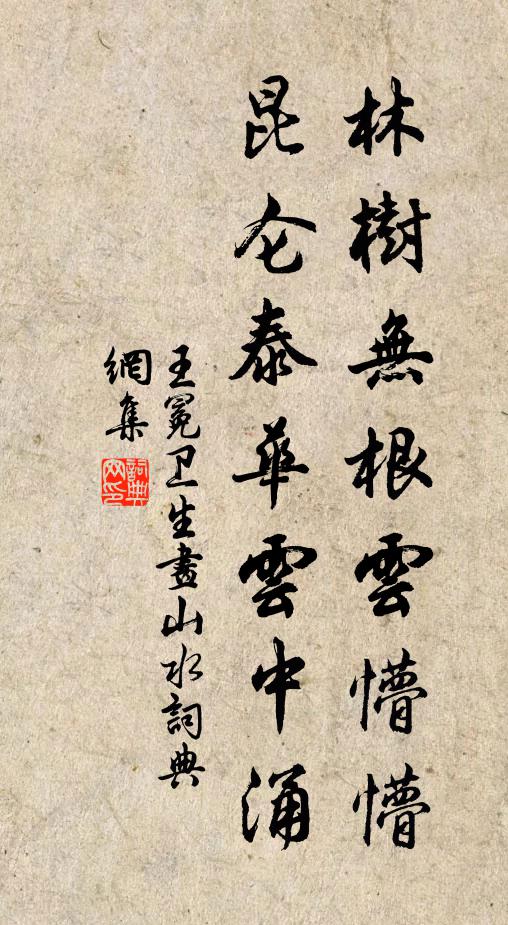 林樹無根雲懵懵
昆仑泰華雲中涌
王冕卫生畫山水詞典
網集
詞典網印